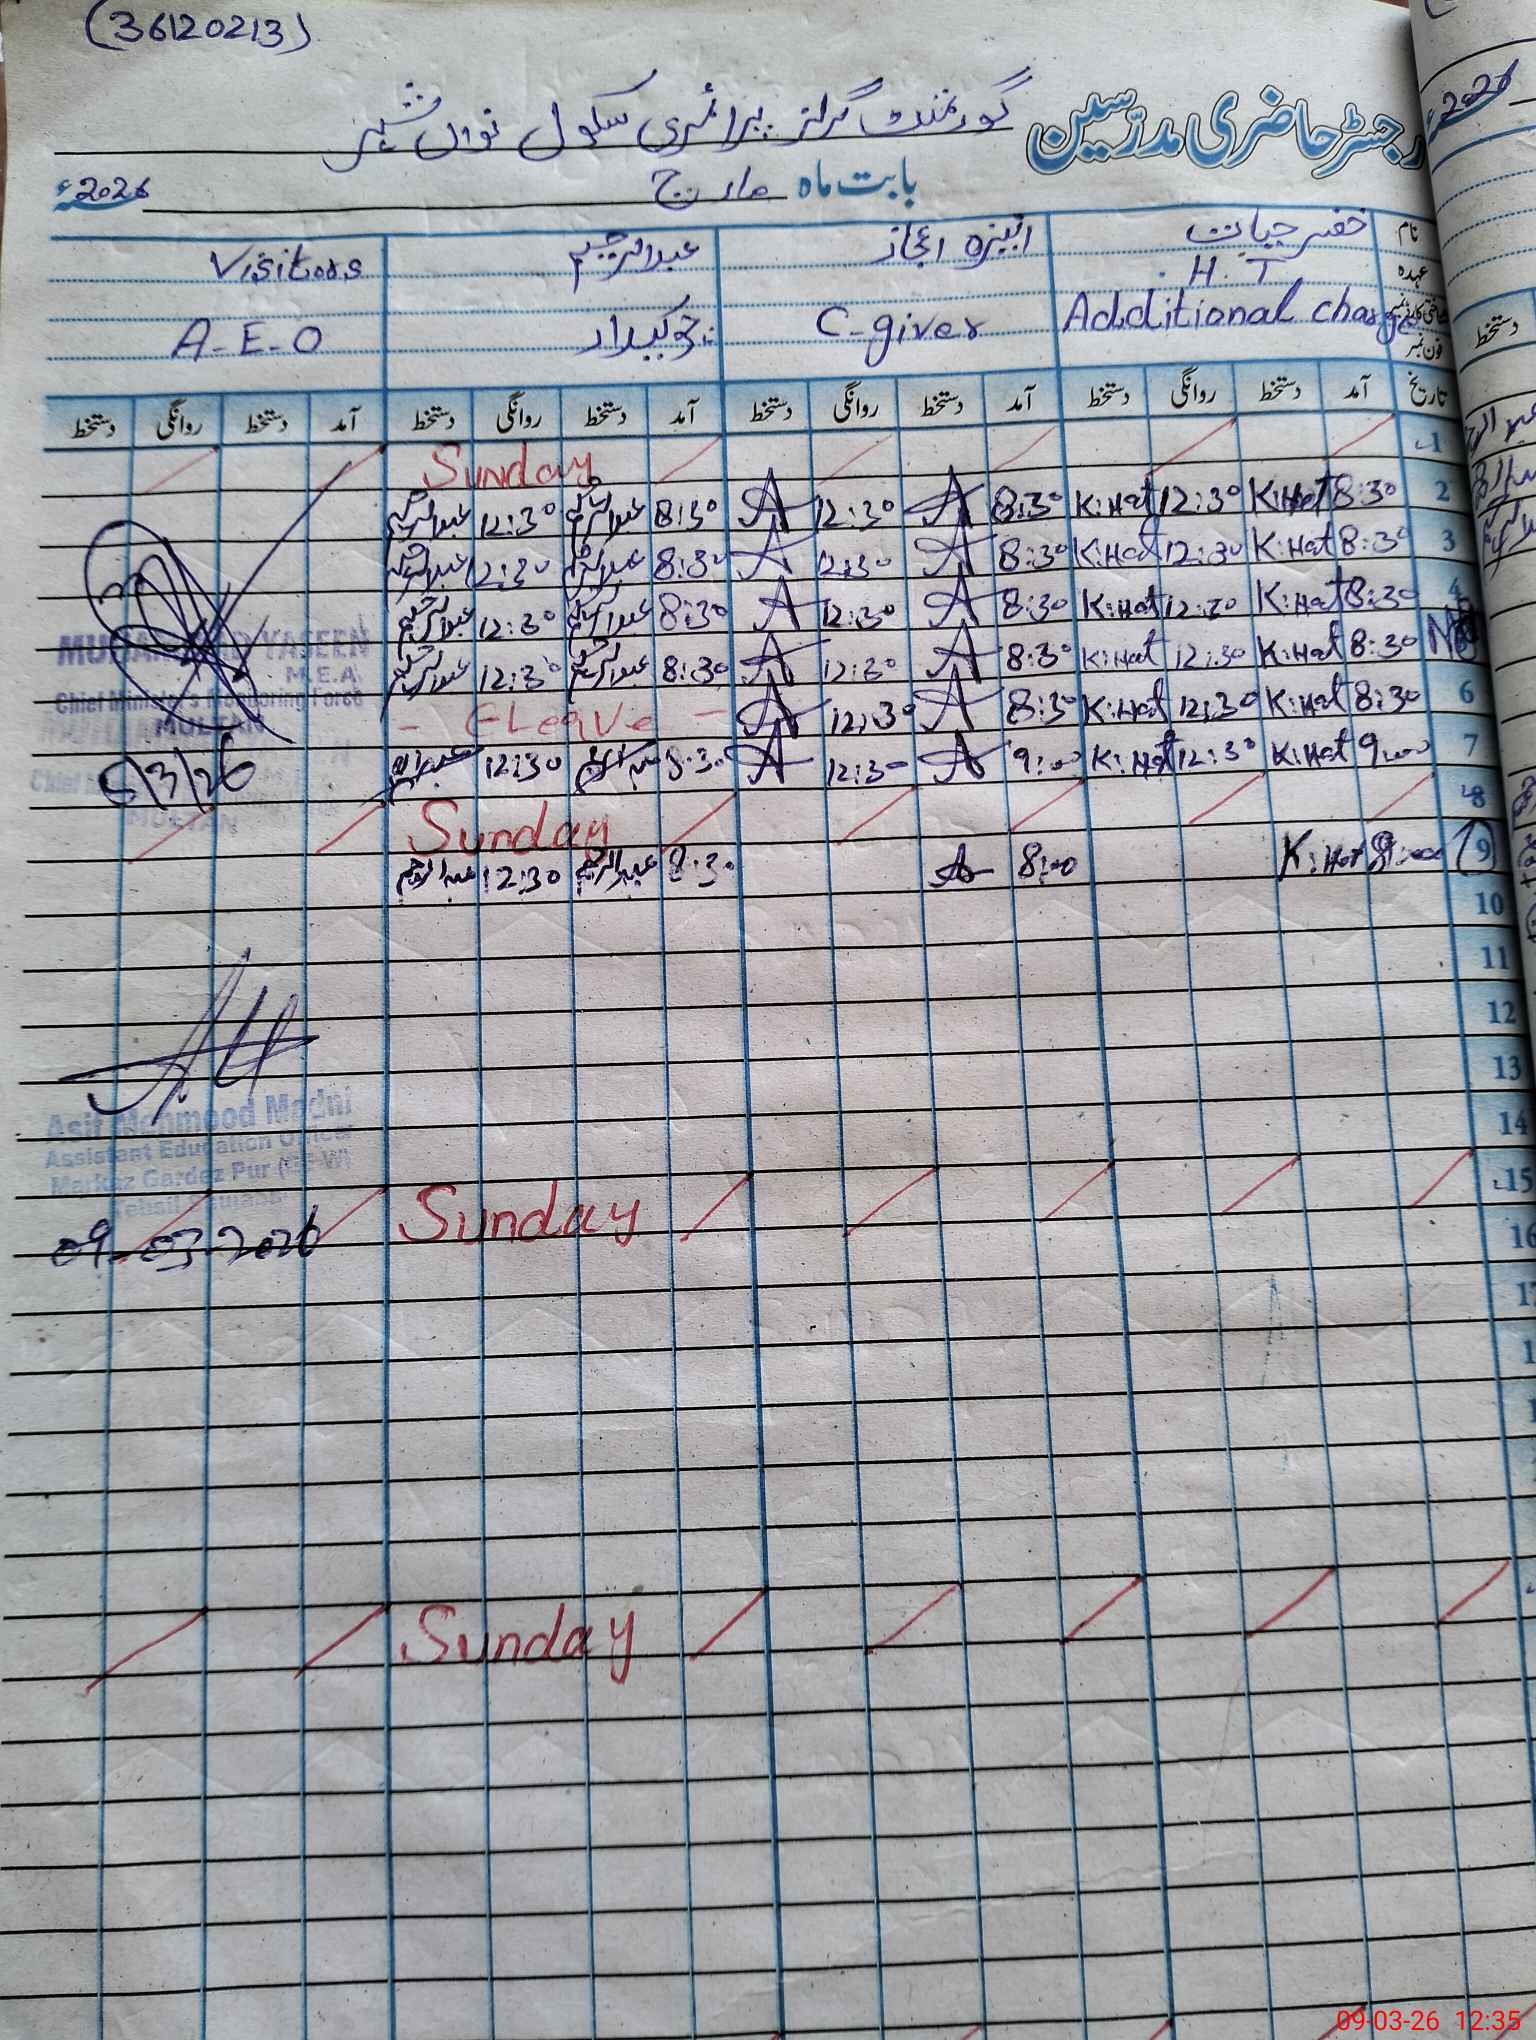 (36120213)
رجسٹر حاضری مدرسین گورنمنٹ گرلز پرائمری سکول نواں شہر
بابت ماہ مارچ 2026ء
نام خضر حیات انیزہ اعجاز عبدالرحیم Visitors
عہدہ H.T
Additional charge C-giver چوکیدار A-E-O
فون نمبر
تاریخ آمد دستخط روانگی دستخط آمد دستخط روانگی دستخط آمد دستخط روانگی دستخط آمد دستخط روانگی دستخط
1 Sunday
2 8:30 K:Hat 12:30 K:Hat 8:30 A 12:30 A 8:30 عبدالرحیم 12:30 عبدالرحیم
3 8:30 K:Hat 12:30 K:Hat 8:30 A 12:30 A 8:30 عبدالرحیم 12:30 عبدالرحیم
4 8:30 K:Hat 12:30 K:Hat 8:30 A 12:30 A 8:30 عبدالرحیم 12:30 عبدالرحیم
8:30 K:Hat 12:30 K:Hat 8:30 A 12:30 A 8:30 عبدالرحیم 12:30 عبدالرحیم
6 8:30 K:Hat 12:30 K:Hat 8:30 A 12:30 A - Leave -
7 9:00 K:Hat 12:30 K:Hat 9:00 A 12:30 A 8:30 عبدالرحیم 12:30 عبدالرحیم
8 Sunday
9 K:Hat 8:00 A 8:30 عبدالرحیم 12:30 عبدالرحیم
10
11
12
13
14
15 Sunday
16
Sunday
MUHAMMAD YASEEN
M.E.A.
Chief Minister's Monitoring Force
MULTAN
5/3/26
Asif Mehmood Madni
Assistant Education Officer
Markaz Gardez Pur
09-03-2026
2026
دستخط
09-03-26 12:35